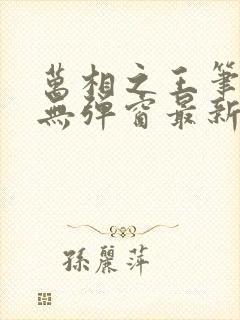 萬相之王筆
無彈窗最新
孫麗萍